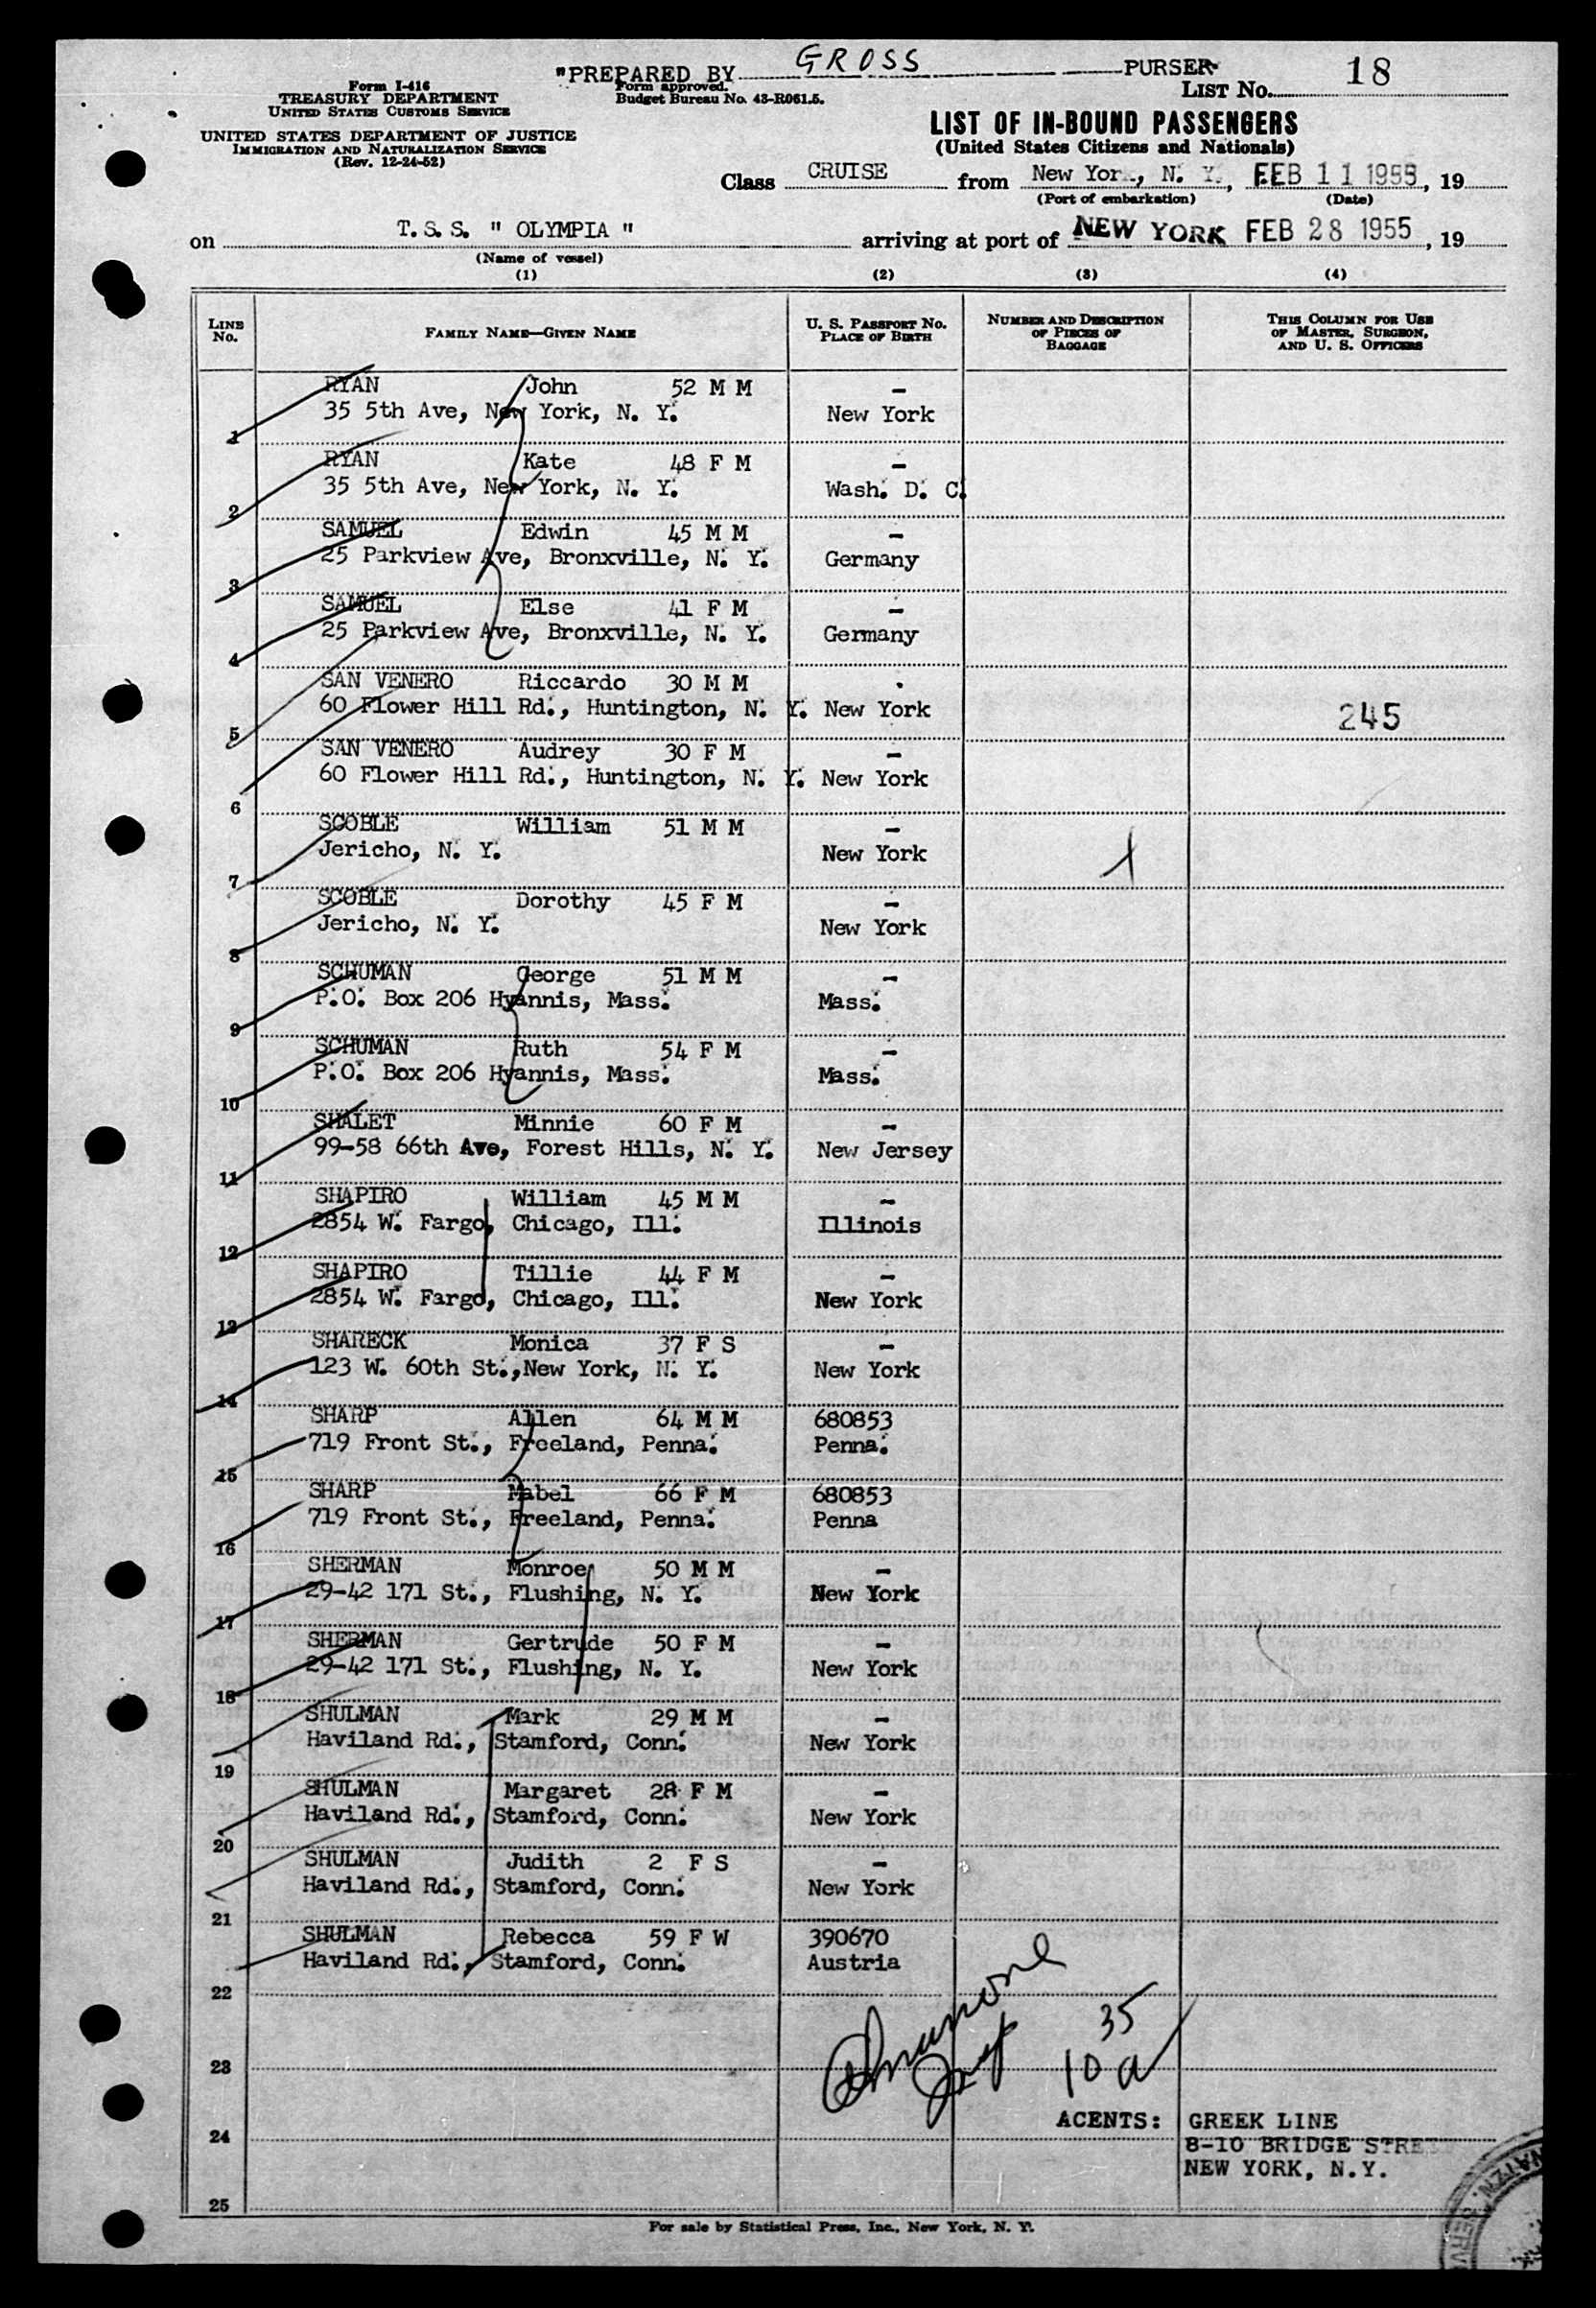 "PREPARED BY GROSS PURSER
Form I-416
TREASURY DEPARTMENT
UNITED STATES CUSTOMS SERVICE
UNITED STATES DEPARTMENT OF JUSTICE
IMMIGRATION AND NATURALIZATION SERVICE
(Rev. 12-24-52)
Form approved.
Budget Bureau No. 43-R061.5.
LIST No. 18
LIST OF IN-BOUND PASSENGERS
(United States Citizens and Nationals)
Class CRUISE from New Yor , N. Y., FEB 11 1955, 19
(Port of embarkation) (Date)
on T.S.S. " OLYMPIA " arriving at port of NEW YORK FEB 28 1955, 19
(Name of vessel)
(1) (2) (3) (4)
LINE No. FAMILY NAME—GIVEN NAME U. S. PASSPORT No. PLACE OF BIRTH NUMBER AND DESCRIPTION OF PIECES OF BAGGAGE THIS COLUMN FOR USE OF MASTER, SURGEON, AND U. S. OFFICERS
RYAN John 52 M M -
1 35 5th Ave, New York, N. Y. New York
RYAN Kate 48 F M -
2 35 5th Ave, New York, N. Y. Wash. D. C.
SAMUEL Edwin 45 M M -
3 25 Parkview Ave, Bronxville, N. Y. Germany
SAMUEL Else 41 F M -
4 25 Parkview Ave, Bronxville, N. Y. Germany
SAN VENERO Riccardo 30 M M .
5 60 Flower Hill Rd., Huntington, N. Y. New York 245
SAN VENERO Audrey 30 F M -
6 60 Flower Hill Rd., Huntington, N. Y. New York
SCOBLE William 51 M M -
7 Jericho, N. Y. New York
SCOBLE Dorothy 45 F M -
8 Jericho, N. Y. New York
SCHUMAN George 51 M M -
9 P.O. Box 206 Hyannis, Mass. Mass.
SCHUMAN Ruth 54 F M -
10 P.O. Box 206 Hyannis, Mass. Mass.
SHALET Minnie 60 F M -
11 99-58 66th Ave, Forest Hills, N. Y. New Jersey
SHAPIRO William 45 M M -
12 2854 W. Fargo, Chicago, Ill. Illinois
SHAPIRO Tillie 44 F M -
13 2854 W. Fargo, Chicago, Ill. New York
SHARECK Monica 37 F S -
14 123 W. 60th St.,New York, N. Y. New York
SHARP Allen 64 M M 680853
15 719 Front St., Freeland, Penna. Penna.
SHARP Mabel 66 F M 680853
16 719 Front St., Freeland, Penna. Penna
SHERMAN Monroe 50 M M -
17 29-42 171 St., Flushing, N. Y. New York
SHERMAN Gertrude 50 F M -
18 29-42 171 St., Flushing, N. Y. New York
SHULMAN Mark 29 M M -
19 Haviland Rd., Stamford, Conn. New York
SHULMAN Margaret 28 F M -
20 Haviland Rd., Stamford, Conn. New York
SHULMAN Judith 2 F S -
21 Haviland Rd., Stamford, Conn. New York
SHULMAN Rebecca 59 F W 390670
22 Haviland Rd., Stamford, Conn. Austria
23
35
10 a
24
AGENTS: GREEK LINE
8-10 BRIDGE STRE
NEW YORK, N.Y.
25
For sale by Statistical Press, Inc., New York, N. Y.